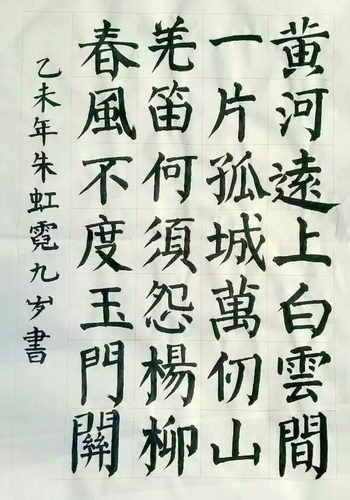 黄河遠上白雲間
一片孤城萬仞山
羌笛何須怨楊柳
春風不度玉門關
乙未年朱虹霓九岁書